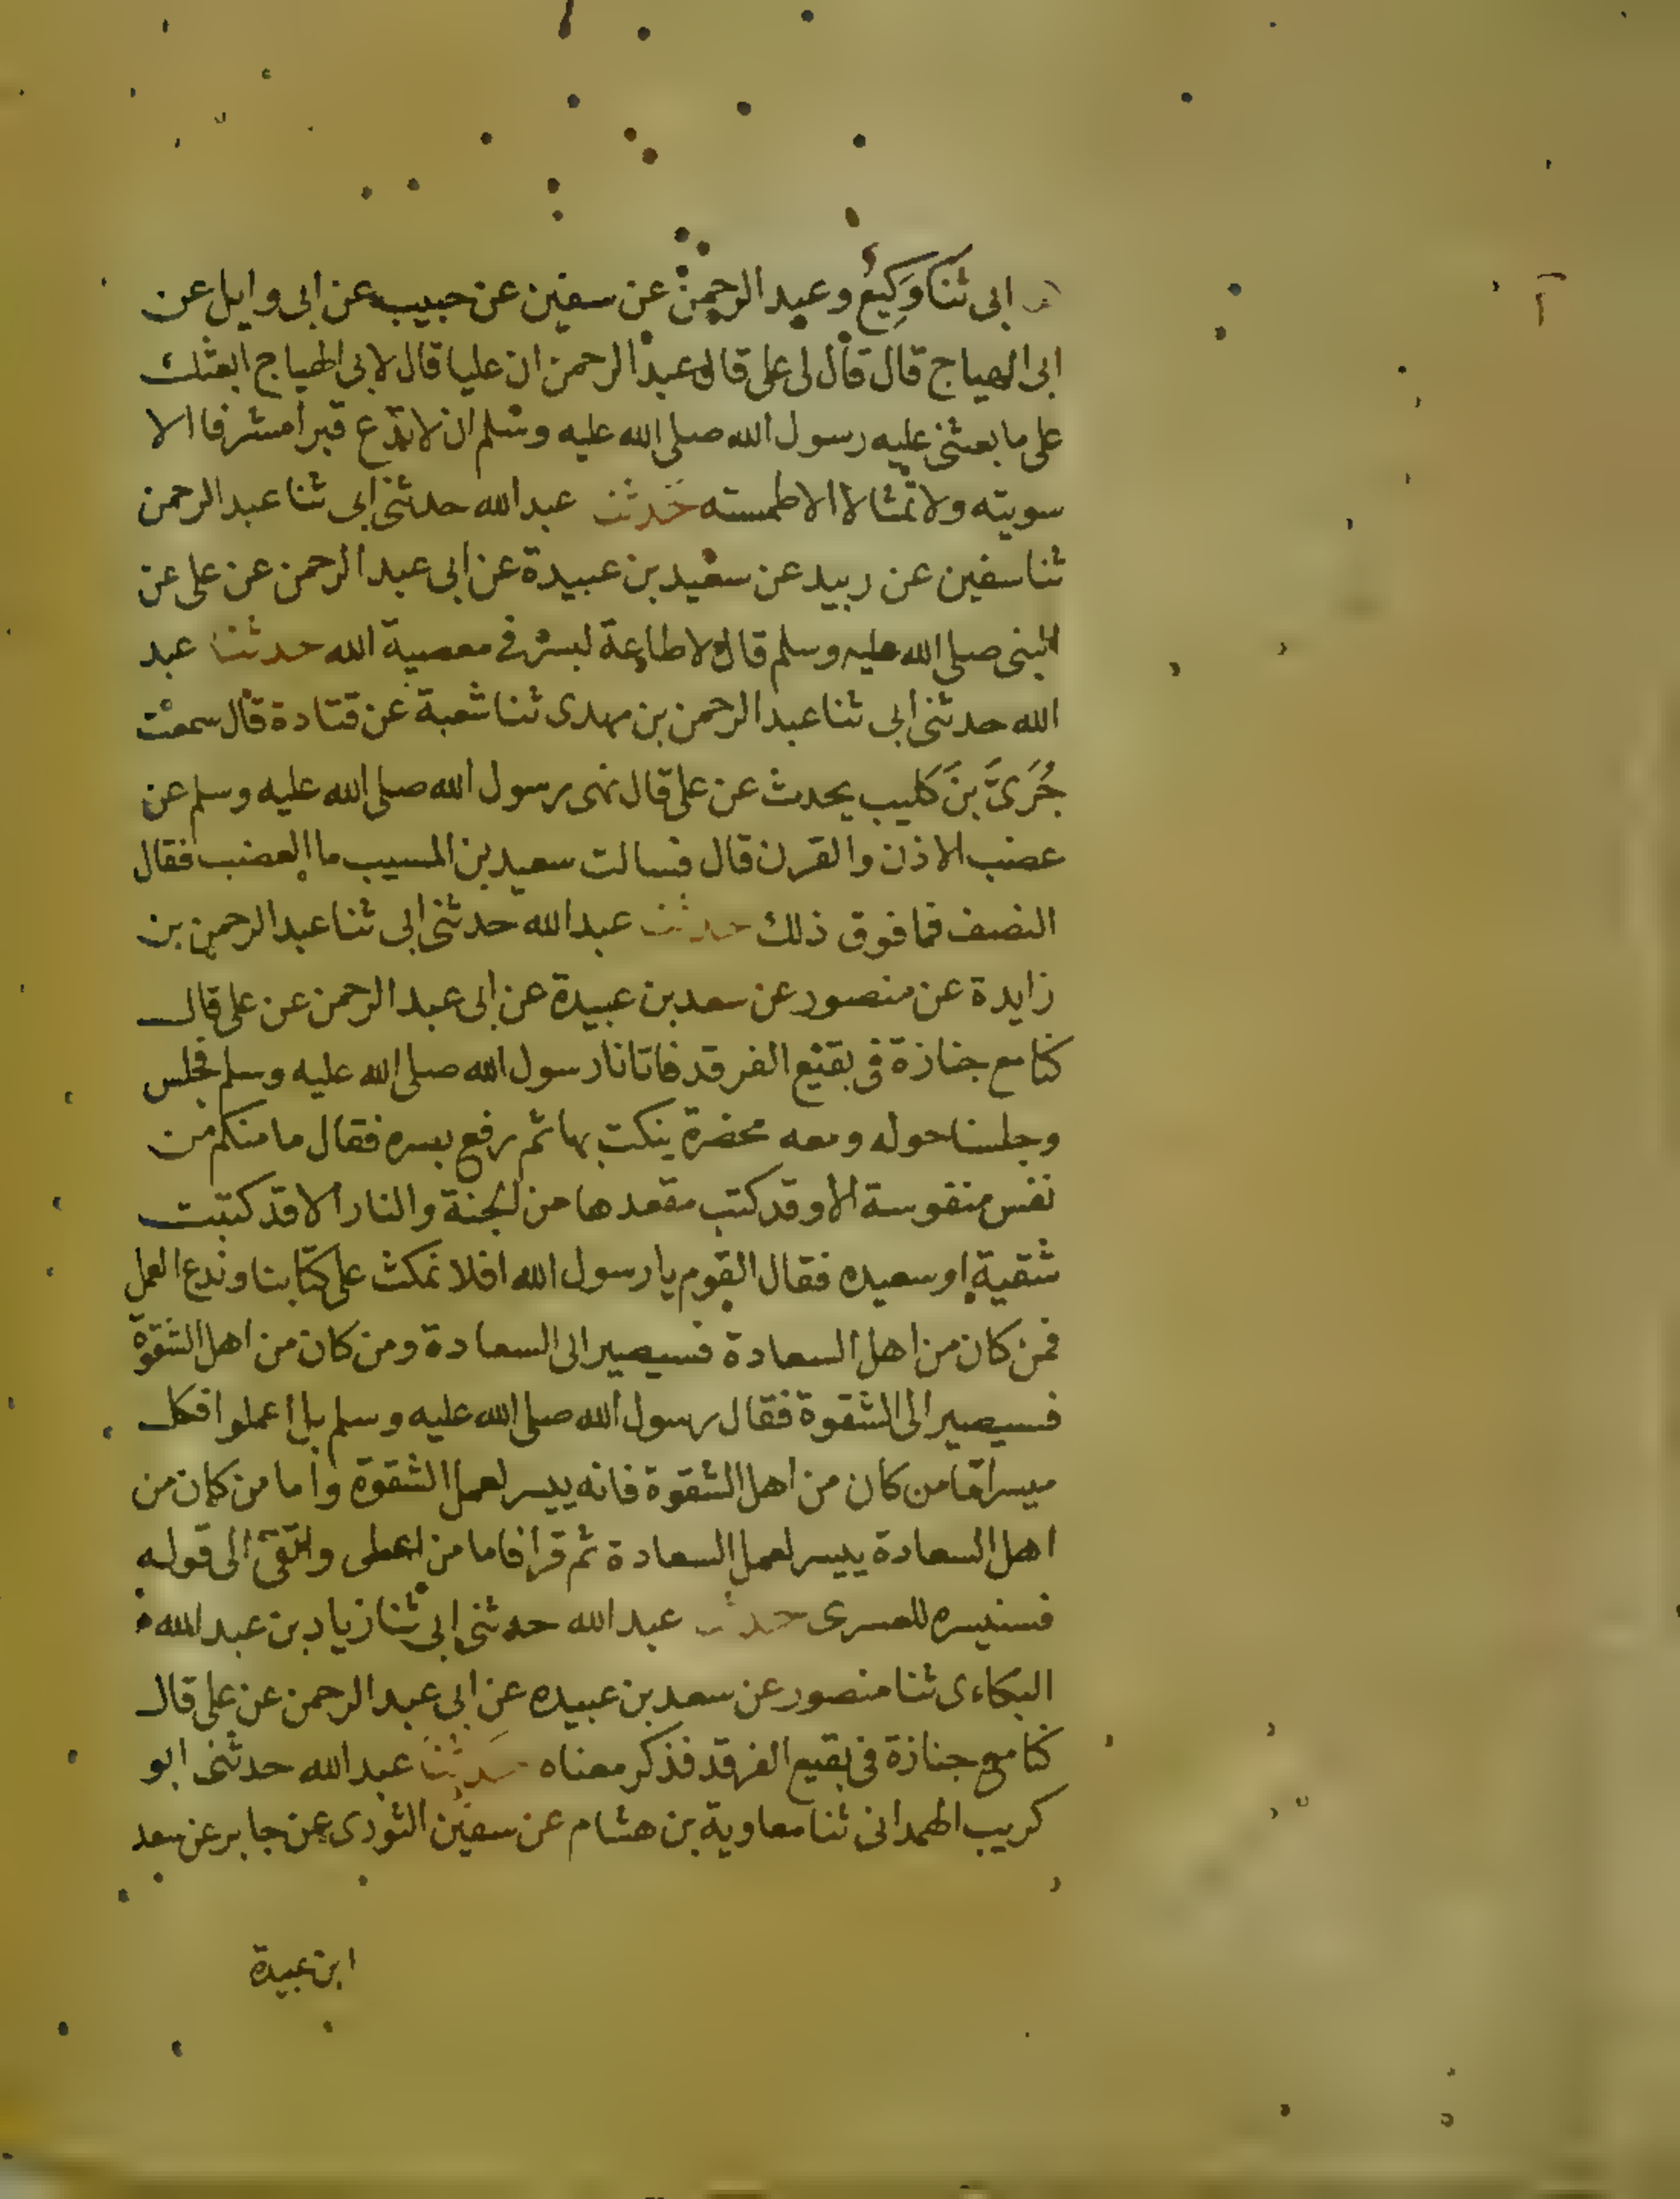 ابى ثنا وَكِيعُ وعبد الرحمن عن سفين عن حبيب عن ابى وايل عن
ابى الهياج قال قال لى على قال وعبد الرحمن ان عليا قال لابى الهياج ابعثك
على ما بعثنى عليه رسول الله صلى الله عليه وسلم ان لا تدع قبرا مشرفا الا
سويته ولا تمثالا الا طمسته حدثنا عبد الله حدثنى ابى ثنا عبد الرحمن
ثنا سفين عن زبيد عن سعيد بن عبيدة عن ابى عبد الرحمن عن على عن
النبى صلى الله عليه وسلم قال لا طاعة لبشر فى معصية الله حدثنا عبد
الله حدثنى ابى ثنا عبد الرحمن بن مهدى ثنا شعبة عن قتادة قال سمعت
جُرَىَّ بنَ كليب يحدث عن على قال نهى رسول الله صلى الله عليه وسلم عن
عضب الاذن والقرن قال فسالت سعيد بن المسيب ما العضب فقال
النصف فما فوق ذلك حدثنا عبد الله حدثنى ابى ثنا عبد الرحمن بن
زايدة عن منصور عن سعد بن عبيدة عن ابى عبد الرحمن عن على قال
كنا مع جنازة فى بقيع الغرقد فاتانا رسول الله صلى الله عليه وسلم فجلس
وجلسنا حوله ومعه مخصرة ينكت بها ثم رفع بصره فقال ما منكم من
نفس منفوسة الا وقد كتب مقعدها من الجنة والنار الا قد كتبت
شقية او سعيده فقال القوم يا رسول الله افلا نمكث على كتابنا وندع العمل
فمن كان من اهل السعادة فسيصير الى السعادة ومن كان من اهل الشقوة
فسيصير الى الشقوة فقال رسول الله صلى الله عليه وسلم بل اعملوا فكل
ميسر اما من كان من اهل الشقوة فانه ييسر لعمل الشقوة واما من كان من
اهل السعادة ييسر لعمل السعادة ثم قرا فاما من اعطى واتقى الى قوله
فسنيسره للعسرى حدثنا عبد الله حدثنى ابى ثنا زياد بن عبد الله
البكاءى ثنا منصور عن سعد بن عبيده عن ابى عبد الرحمن عن على قال
كنا مع جنازة فى بقيع الغرقد فذكر معناه حدثنا عبد الله حدثنى ابو
كريب الهمدانى ثنا معاوية بن هشام عن سفين الثورى عن جابر عن سعد
ابن عبيدة